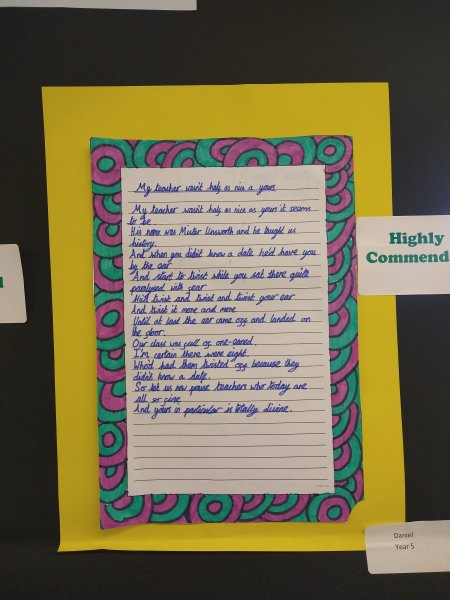 My teacher wasn't half as nice a yours.
My teacher wasn't half as nice as yours it seems
to be.
His name was Mister Unsworth and he taught us
history.
And when you didn't know a date he'd have you
by the ear
And start to twist while you sat there quite
paralysed with fear
He'd twist and twist and twist your ear
And twist it more and more
Until at last the ear came off and landed on
the floor.
Our class was full of one-eared.
I'm certain there were eight.
Who'd had them twisted off because they
didn't know a date.
So let us now praise teachers who today are
all so fine
And yours in particular is totally divine.
Highly
Commend
Daniel
Year 5